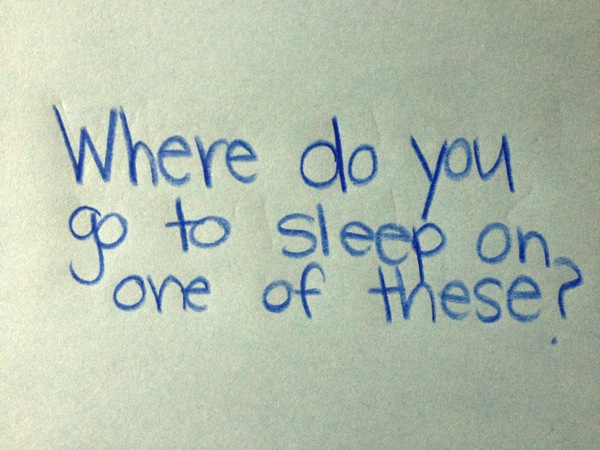 Where do you
go to sleep on
one of these?